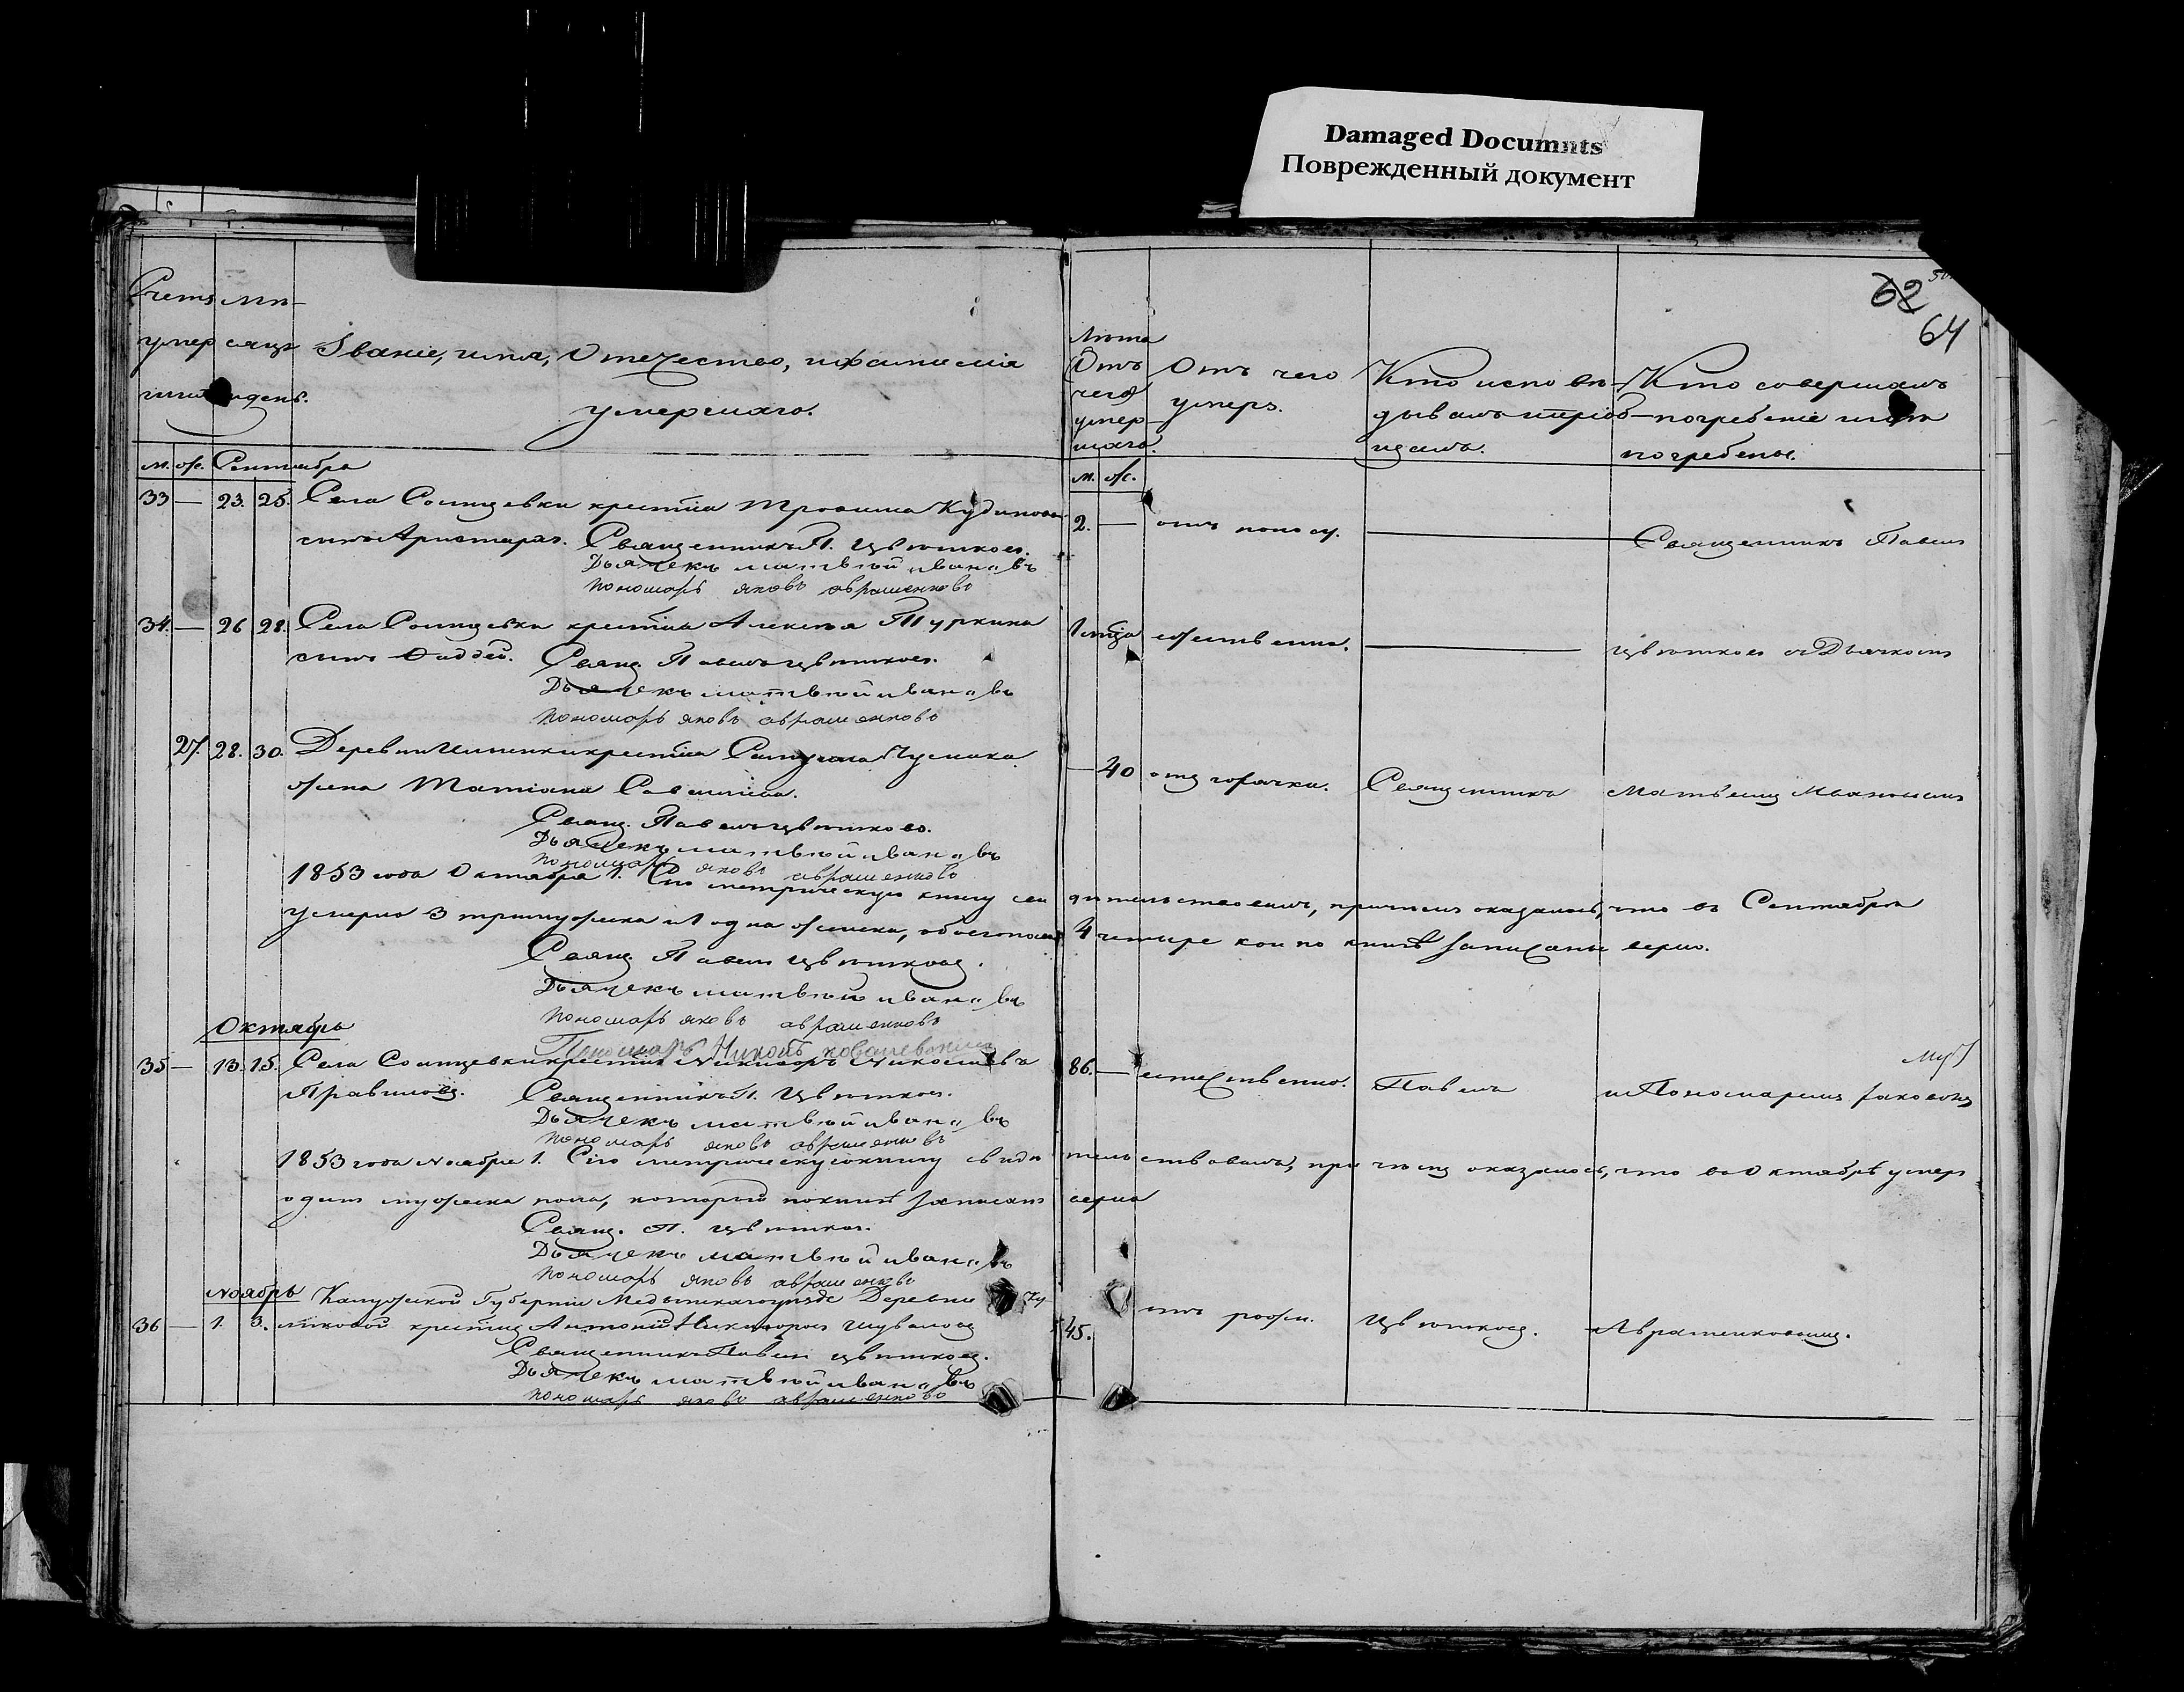 Damaged Documnts
Поврежденный документ
62
64
Счетъ мѣ-
умер сяцъ
шихъ и день.
Званіе, имя, Отечество, и фамилія
умершаго.
Лѣта
умер
шаго.
Отъ чего
умеръ.
Кто исповѣ-
дывалъ и пріоб-
щалъ.
Кто совершалъ
погребеніе и гдѣ
погребены.
м. ж. Сентябрь
м. ж.
33 — 23. 25. Села Солнцевки крестіа Трофима Кудинова
сынъ Аристархъ. Священникъ П. Цвѣтковъ.
Дьячекъ матвѣй ивановъ
пономарь яковъ авраменковъ
2. — отъ поносу. — Священникъ Павелъ
34. — 26 28. Села Солнцевки крестіа Алексѣя Туркина
сынъ Фаддей. Свящ. Павелъ Цвѣтковъ.
Дьячекъ матвѣй ивановъ
пономарь яковъ авраменковъ
1 мѣсца естественно. — Цвѣтковъ съ Дьячкомъ
27. 28. 30. Деревни крестіа
жена Татіана
Свящ. Павелъ Цвѣтковъ.
Дьячекъ матвѣй ивановъ
пономарь яковъ авраменковъ
— 40 отъ горячки. Священникъ Матвѣемъ Ивановымъ
1853 года Октября 1. Сію метрическую книгу сви дѣтельствовалъ, причемъ оказалось, что въ Сентябрѣ
умерло 3 три мужеска и 1 одна женска, обоего пола 4 четыре кои по книгѣ записаны верно.
Свящ. Павелъ Цвѣтковъ.
Дьячекъ матвѣй ивановъ
пономарь яковъ авраменковъ
Октябрь
Пономарь
35 — 13. 15. Села Солнцевки крестіа Никифоръ Николаевъ
Правиловъ. Священникъ П. Цвѣтковъ.
Дьячекъ матвѣй ивановъ
пономарь яковъ авраменковъ
86. — естественно. Павелъ и Пономаремъ Яковомъ
1853 года Ноября 1. Сію метрическую книгу свидѣ тельствовалъ, при чемъ оказалось, что въ Октябрѣ умеръ
одинъ мужеска пола, который по книгѣ записанъ верно
Свящ. П. Цвѣтковъ.
Дьячекъ матвѣй ивановъ
пономарь яковъ авраменковъ
Ноябрь Калужской Губерніи Медынскаго уѣзда Деревни
36 — 1. 3. крестіа Антоній Никифоровъ Шуваловъ
Священникъ Павелъ Цвѣтковъ.
Дьячекъ матвѣй ивановъ
пономарь яковъ авраменковъ
45. отъ рожи. Цвѣтковъ. Авраменковымъ.